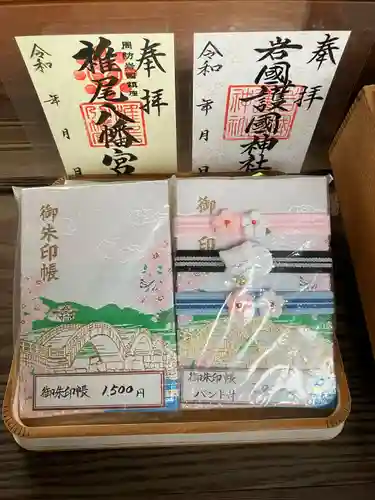 奉拝
周防岩国鎮座
椎尾八幡宮
令和 年 月
奉拝
岩國護國神社
令和 年 月
御朱印帳
御朱印
御朱印帳 1,500円
御朱印帳
バンド付